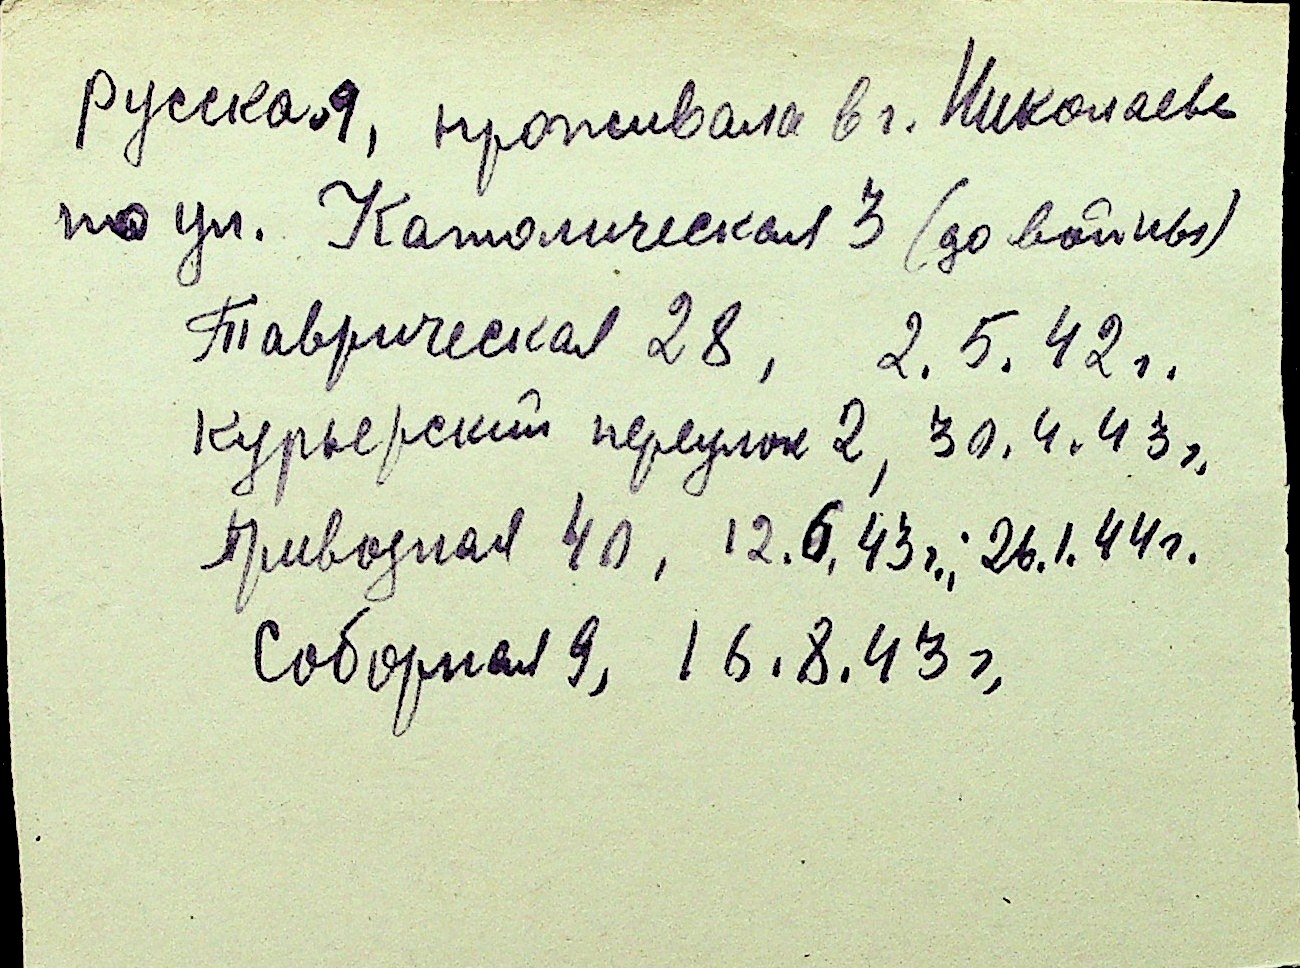 русская, проживала в г. Николаеве
по ул. Католическая 3 (до войны)
Таврическая 28, 2.5.42 г.
Курьерский переулок 2, 30.4.43 г.
Приводная 40, 12.6.43 г.; 26.1.44 г.
Соборная 9, 16.8.43 г.